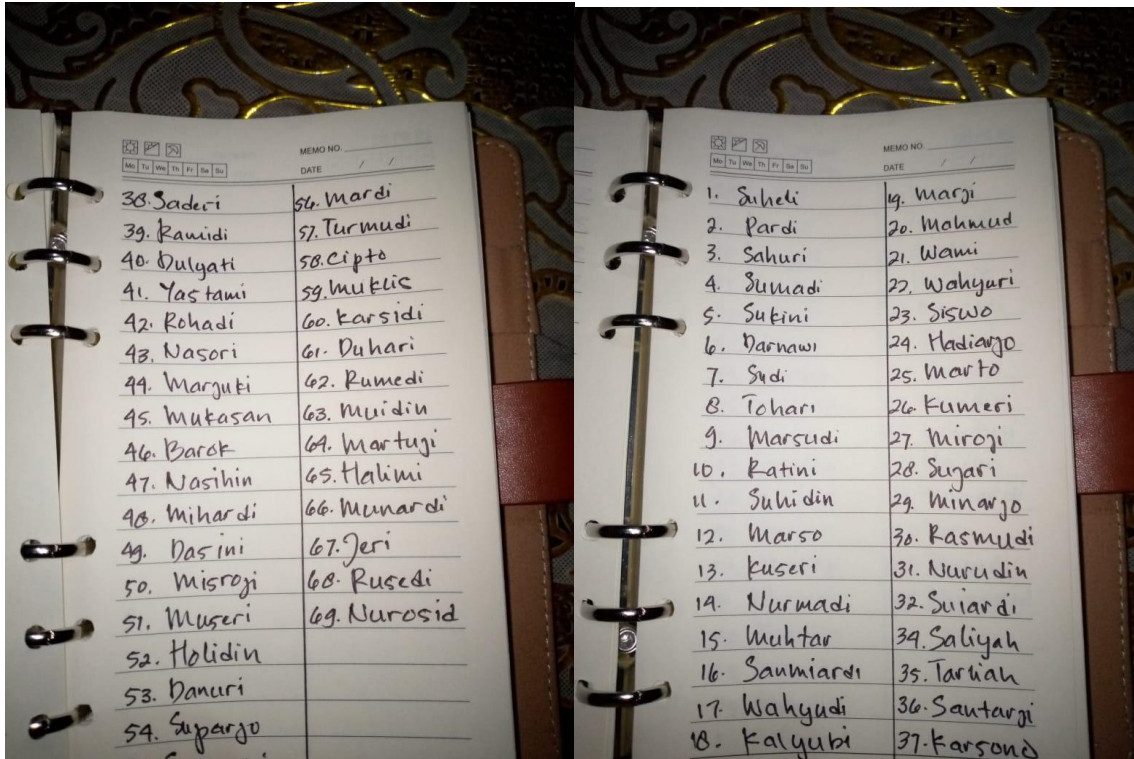 MEMO NO.
Mo Tu We Th Fr Sa Su
DATE / /
38. Saderi
39. Ramidi
40. Dulyati
41. Yastami
42. Rohadi
43. Nasori
44. Marjuki
45. Mukasan
46. Barok
47. Nasihin
48. Mihardi
49. Dasini
50. Misroji
51. Museri
52. Holidin
53. Danuri
54. Suparjo
56. Mardi
57. Turmudi
58. Cipto
59. Muklis
60. Karsidi
61. Duhari
62. Rumedi
63. Muidin
64. Martugi
65. Halimi
66. Munardi
67. Jeri
68. Rusedi
69. Nurosid
MEMO NO.
Mo Tu We Th Fr Sa Su
DATE / /
1. Suheli
2. Pardi
3. Sahuri
4. Sumadi
5. Sukini
6. Darnawi
7. Sudi
8. Tohari
9. Marsudi
10. Ratini
11. Suhidin
12. Marso
13. Kuseri
14. Nurmadi
15. Muhtar
16. Sanmiardi
17. Wahyudi
18. Kalyubi
19. Marji
20. Mahmud
21. Wami
22. Wahyuri
23. Siswo
24. Hadiarjo
25. Marto
26. Kumeri
27. Miroji
28. Sujari
29. Minarjo
30. Rasmudi
31. Nurudin
32. Suiardi
34. Saliyah
35. Tarliah
36. Santarji
37. Karsono